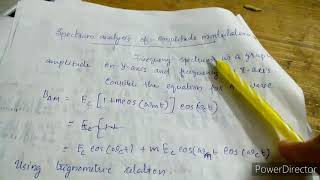 Spectrum analysis of amplitude modulation
Frequency spectrum is a graph
amplitude on Y-axis and frequency X-axis
Consider the equation for wave
BAM = Ec [1+mcos(ωmt)] cos(ωct)
= Ec[1+
= Ec cos(ωct) + m Ec cos(ωmt) cos(ωct)
Using trignometric relation
PowerDirector